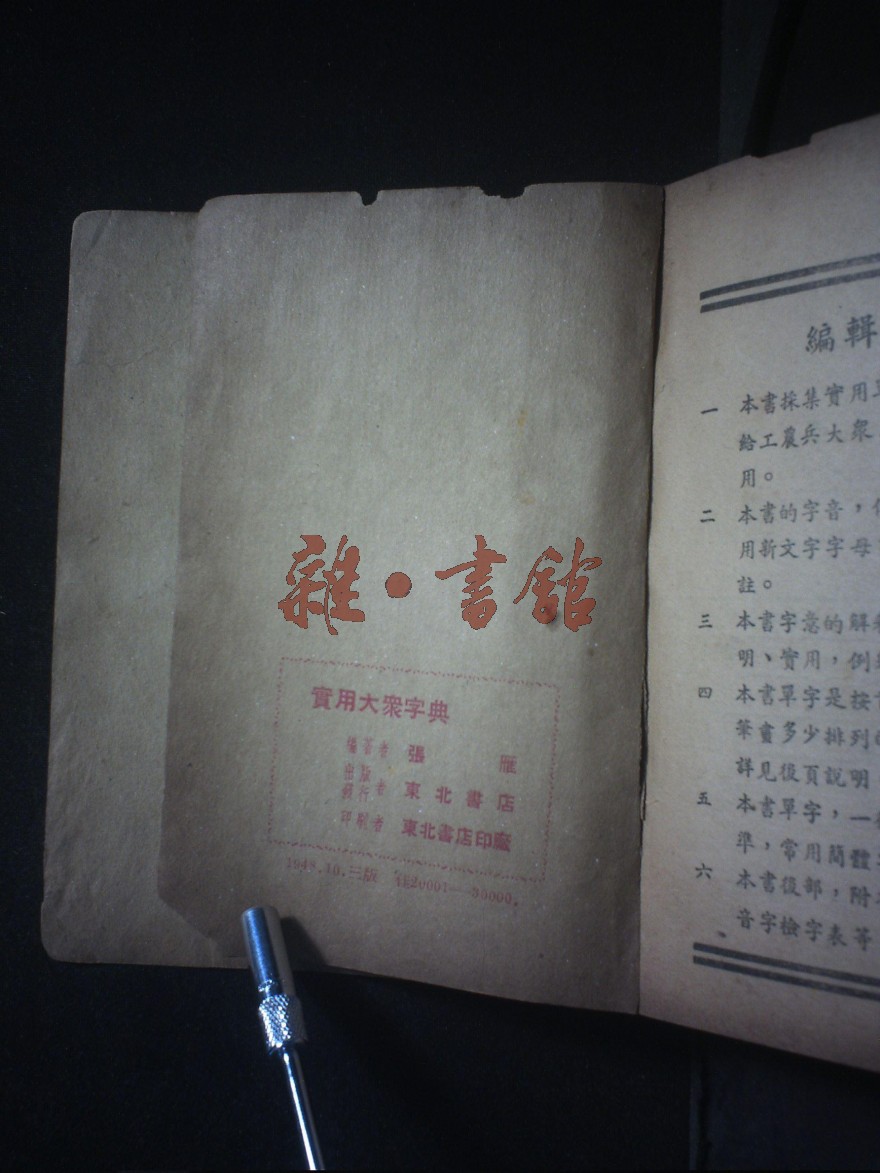 雜·書館
實用大衆字典
編著者 張雁
出版者
發行者 東北書店
印刷者 東北書店印廠
1948.10.三版 佳20001—30000.
編輯
一 本書採集實用單
給工農兵大衆
用。
二 本書的字音，
用新文字字母
註。
三 本書字意的解
明、實用，例
四 本書單字是按
筆畫多少排列
詳見後頁說明
五 本書單字，一
準，常用簡體
六 本書後部，附
音字檢字表等